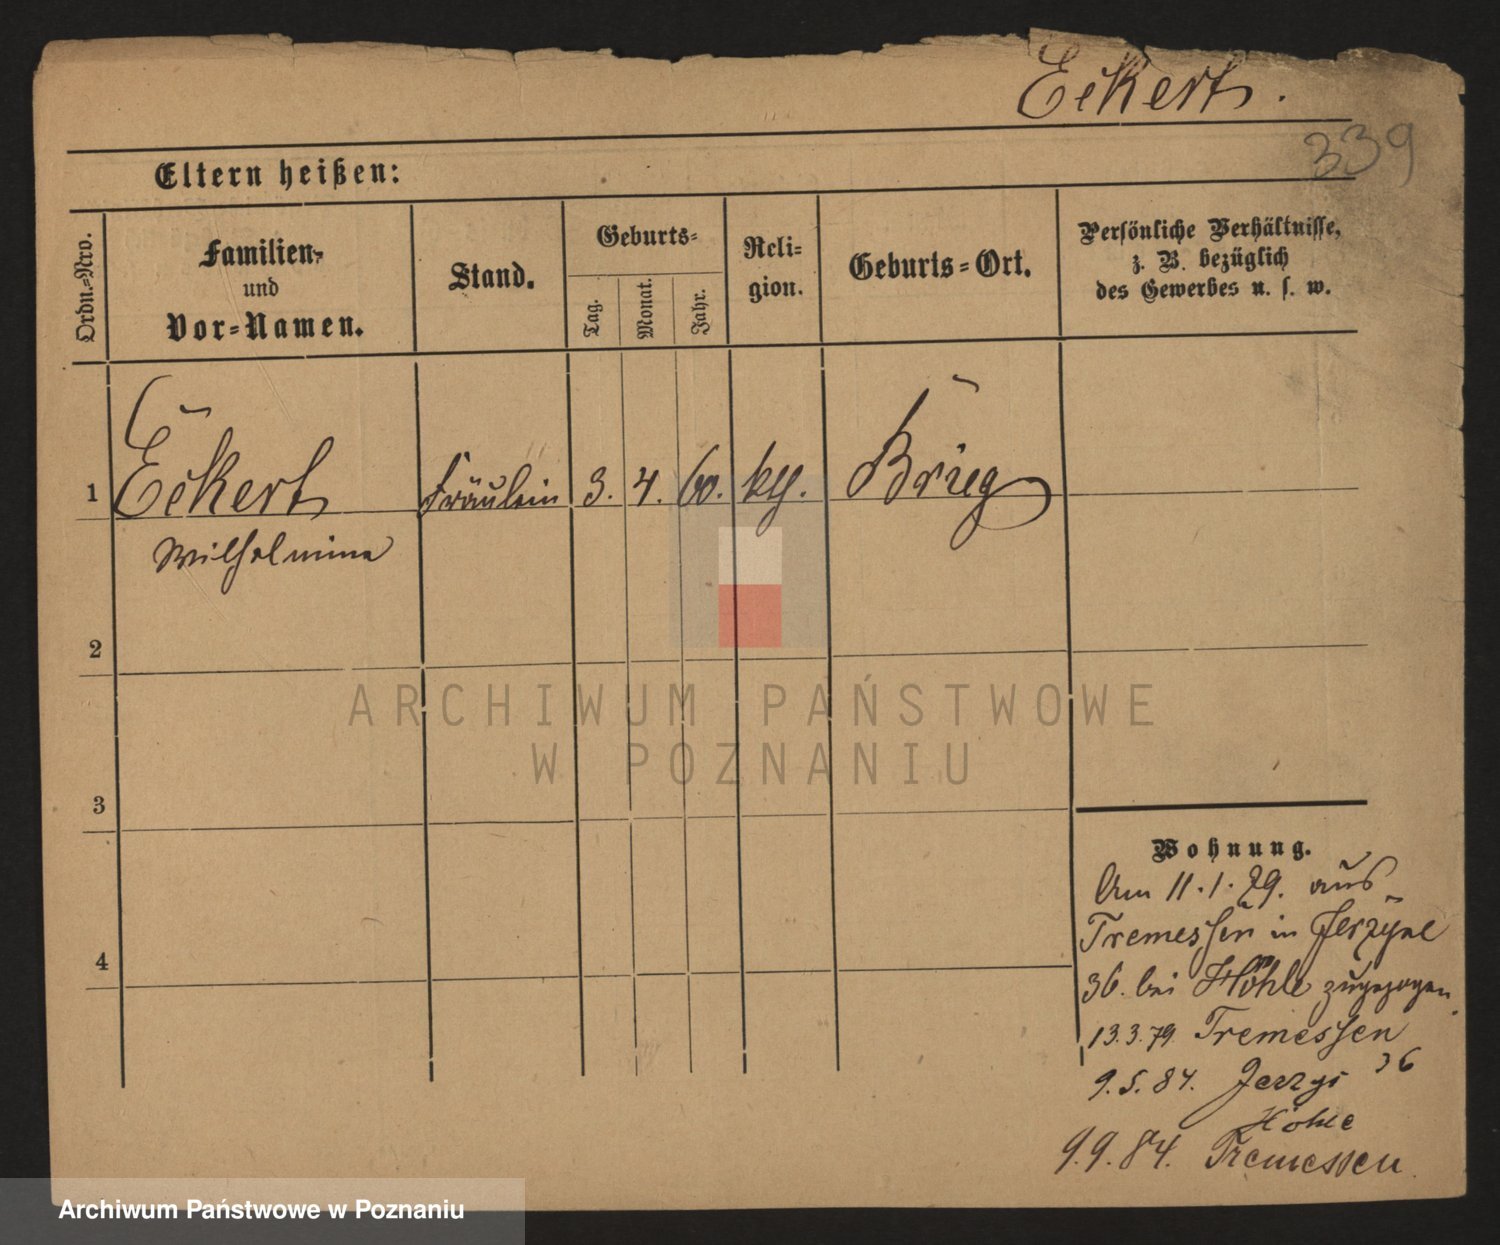 Eckert.
339
Eltern heißen:
Ordn.=Nro.
Familien=
und
Vor=Namen.
Stand.
Geburts=
Tag.
Monat.
Jahr.
Reli=
gion.
Geburts=Ort.
Persönliche Verhältnisse,
z. B. bezüglich
des Gewerbes u. s. w.
1 Eckert Fräulein 3. 4. 60. Brieg
Wilhelmine
2
3
4
Wohnung.
Am 11.1.79. aus
Tremessen in
36. bei Höhle zugezogen.
13.3.79. Tremessen
9.5.84. 36
Höhle
9.9.84. Tremessen
ARCHIWUM PAŃSTWOWE
W POZNANIU
Archiwum Państwowe w Poznaniu